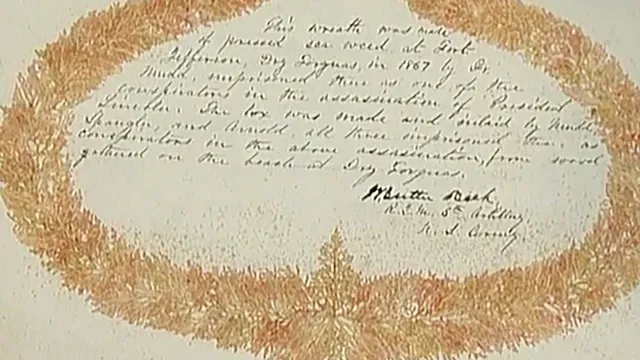 This wreath was made
of pressed sea weed at Fort
Jefferson, Dry Torguas, in 1867 by Dr.
Mudd, imprisoned there as one of the
conspirators in the assassination of President
Lincoln. The box was made and inlaid by Mudd,
Spangler, and Arnold all three imprisoned there as
conspirators in the above assassination, from wood
gathered on the beach at Dry Torguas.
R.Q.M. 5th Artillery
U.S. Army.